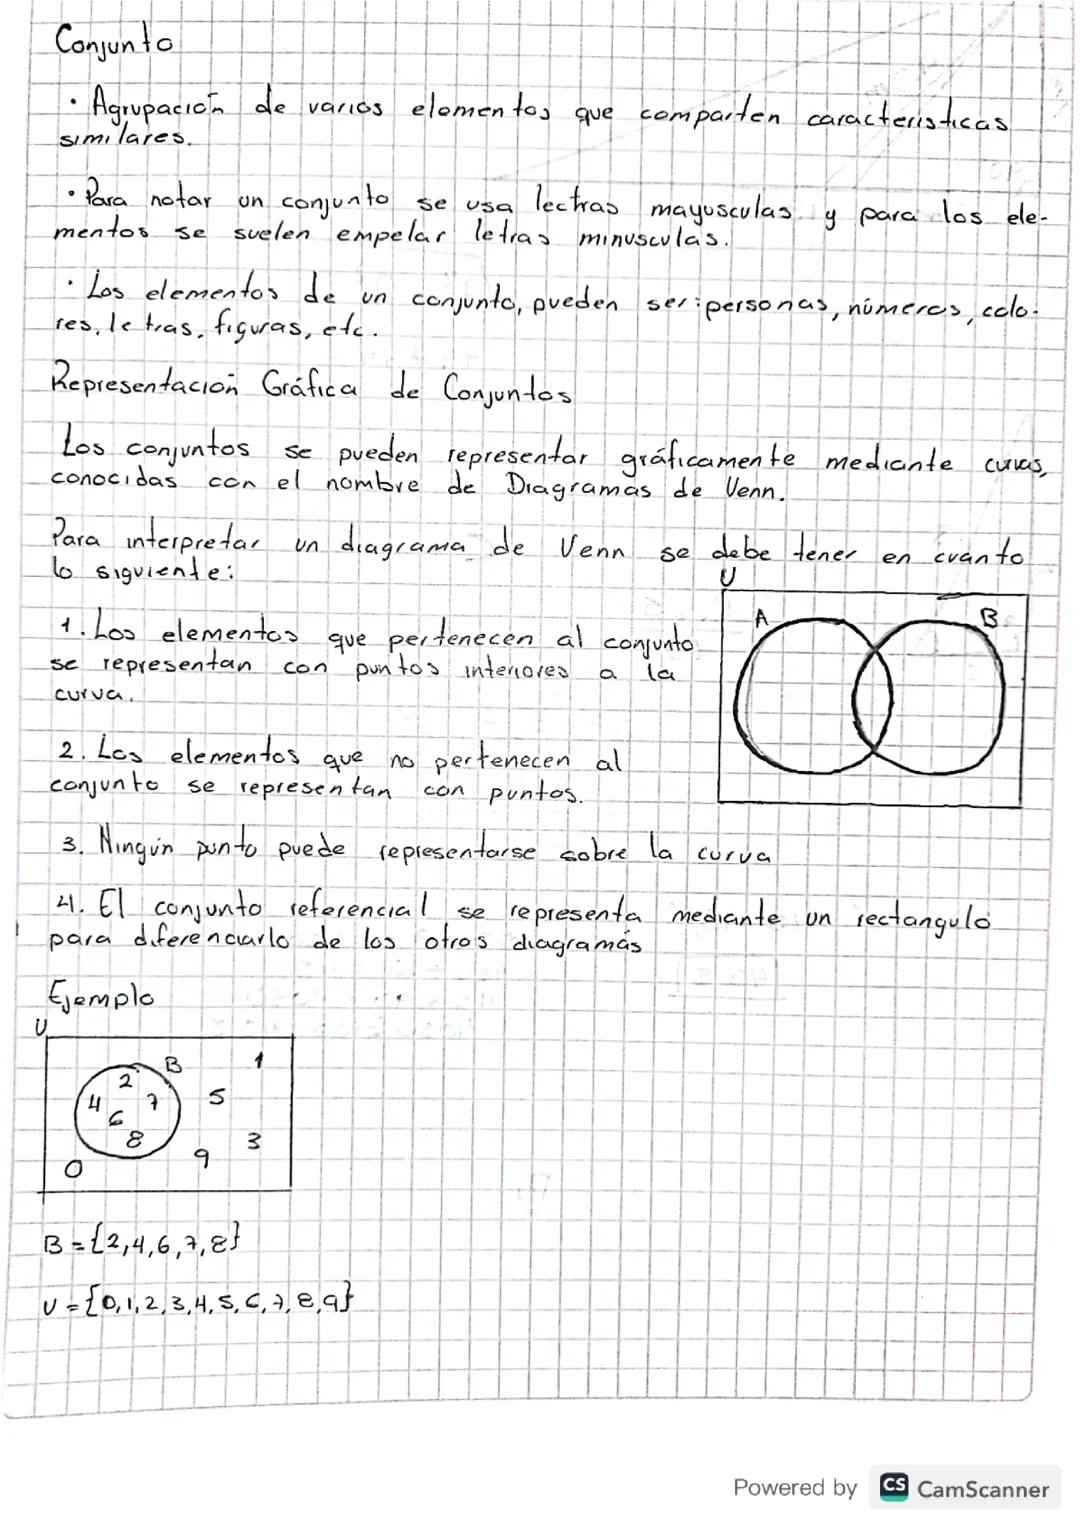 Conjunto
· Agrupación de varios elementos que comparten caracteristicas
similares.
· Para notar un conjunto se usa lectras mayusculas y para los ele-
mentos se suelen empelar letras minusculas.
· Los elementos de un conjunto, pueden ser: personas, números, colo-
res, letras, figuras, etc.
Representación Gráfica de Conjuntos
Los conjuntos se pueden representar gráficamente mediante curvas,
conocidas con el nombre de Diagramas de Venn.
Para interpretar un diagrama de Venn se debe tener en cuanto
lo siguiente:
U
A B
1. Los elementos que pertenecen al conjunto
se representan con puntos interiores a la
curva.
2. Los elementos que no pertenecen al
conjunto se representan con puntos.
3. Ningún punto puede representarse sobre la curva
4. El conjunto referencial se representa mediante un rectangulo
para diferenciarlo de los otros diagramas
Ejemplo
U
B 1
2
4 7 5
6
8 3
0 9
B = {2,4,6,7,8}
U = {0,1,2,3,4,5,6,7,8,9}
Powered by CS CamScanner